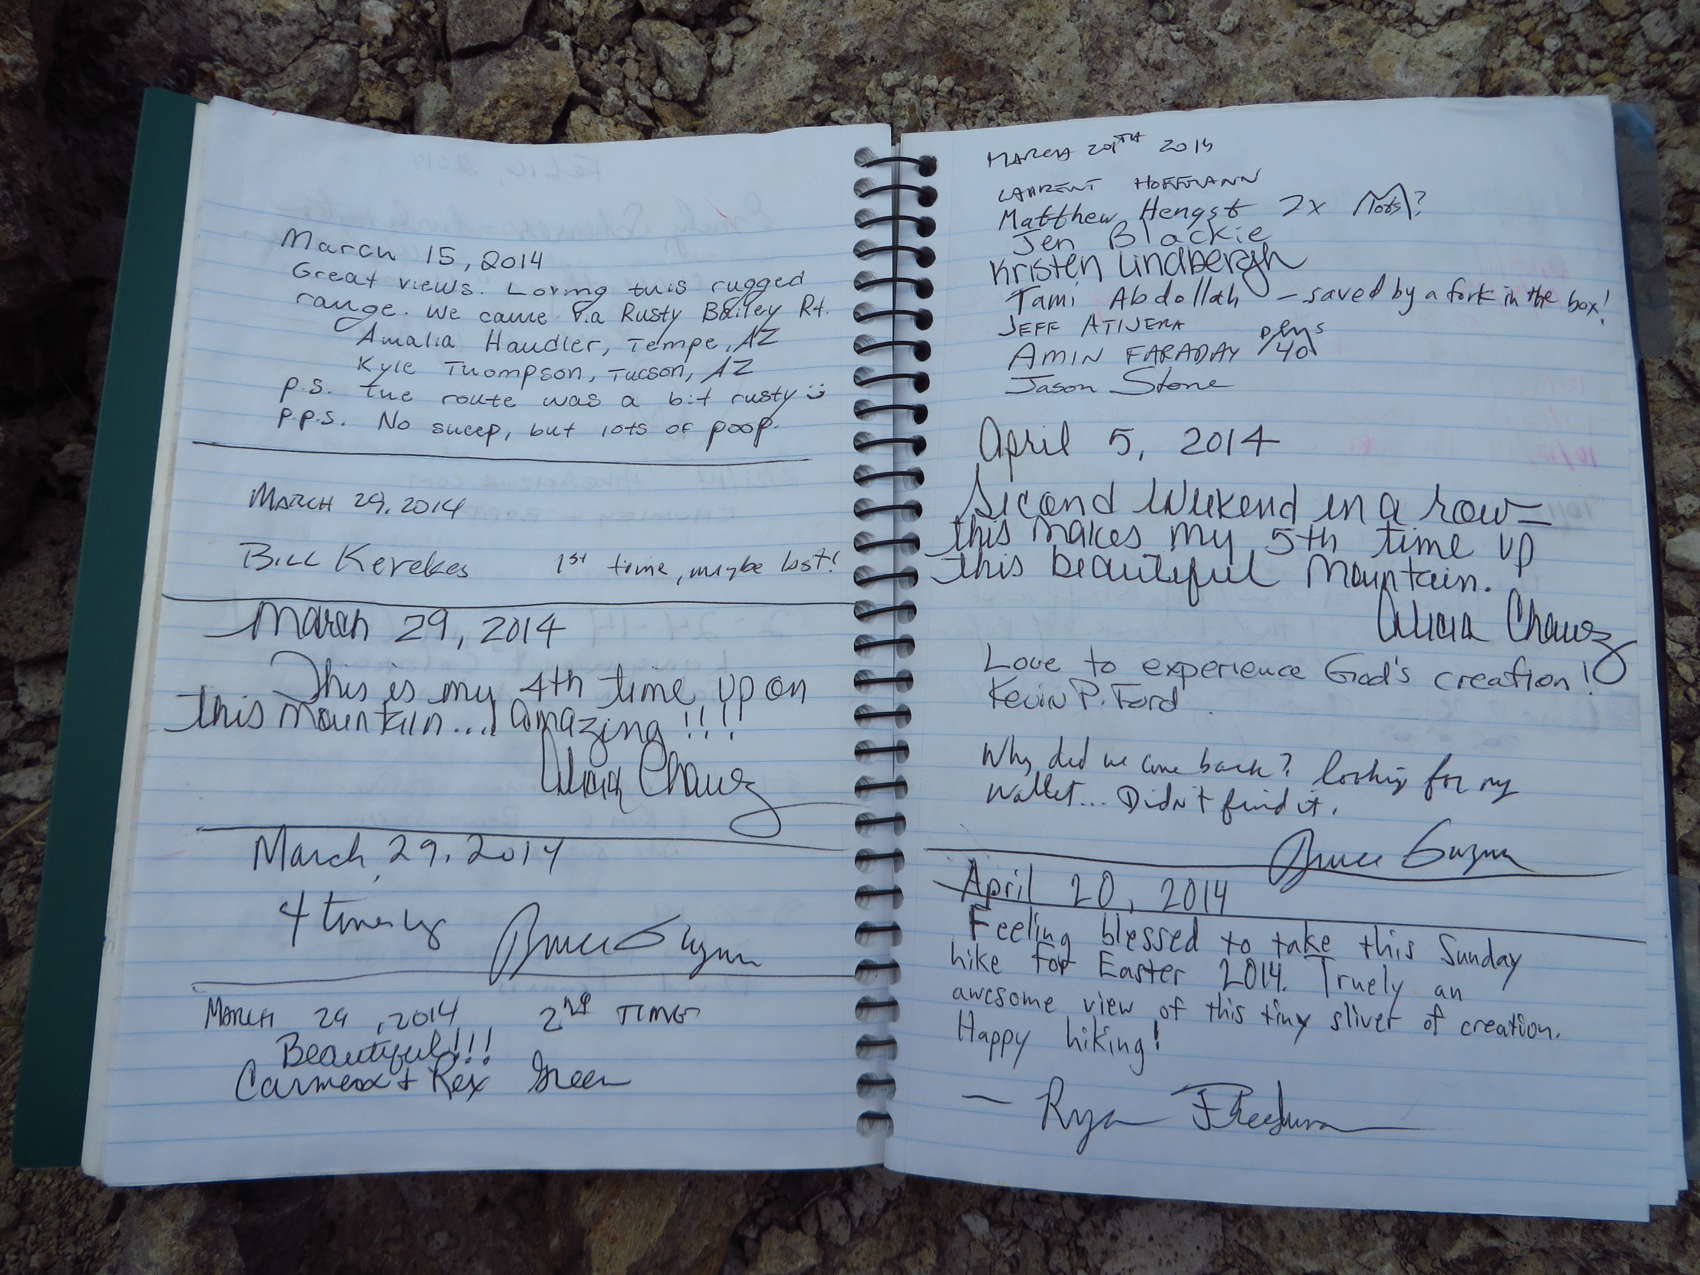 March 15, 2014
Great views. Loving this rugged
range. We came via Rusty Bailey Rt.
Amalia Handler, Tempe, AZ
Kyle Thompson, Tucson, AZ
p.s. the route was a bit rusty
p.p.s. No sheep, but lots of poop.
MARCH 29, 2014
Bill Kerekes 1st time, maybe last!
March 29, 2014
This is my 4th time up on
this mountain.... amazing!!!!
Alicia Chavez
March, 29, 2014
4 times up Bruce Guzman
MARCH 29, 2014 2ND TIME
Beautiful!!!
Carmen + Rex Green
MARCH 29TH 2014
LAURENT HOFFMANN
Matthew Hengst 2x
Jen Blackie
Kristen Lindbergh
Tami Abdollah – saved by a fork in the box!
JEFF ATIJERA
AMIN FARADAY
Jason Stone
April 5, 2014
Second Weekend in a row –
this makes my 5th time up
this beautiful mountain.
Alicia Chavez
Love to experience God's creation!
Kevin P. Ford
Why did we come back? Looking for my
wallet... Didn't find it.
Bruce Guzman
April 20, 2014
Feeling blessed to take this Sunday
hike for Easter 2014. Truely an
awesome view of this tiny sliver of creation.
Happy hiking!
— Ryan